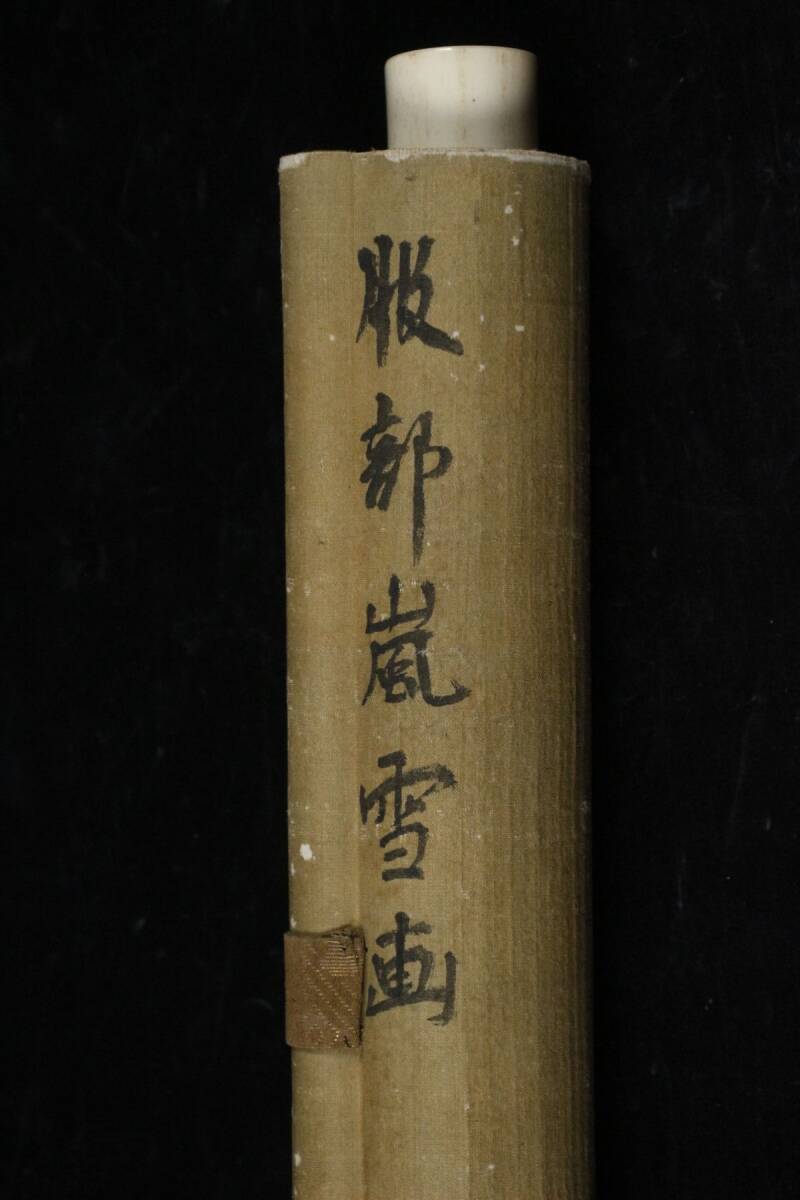 服部嵐雪画